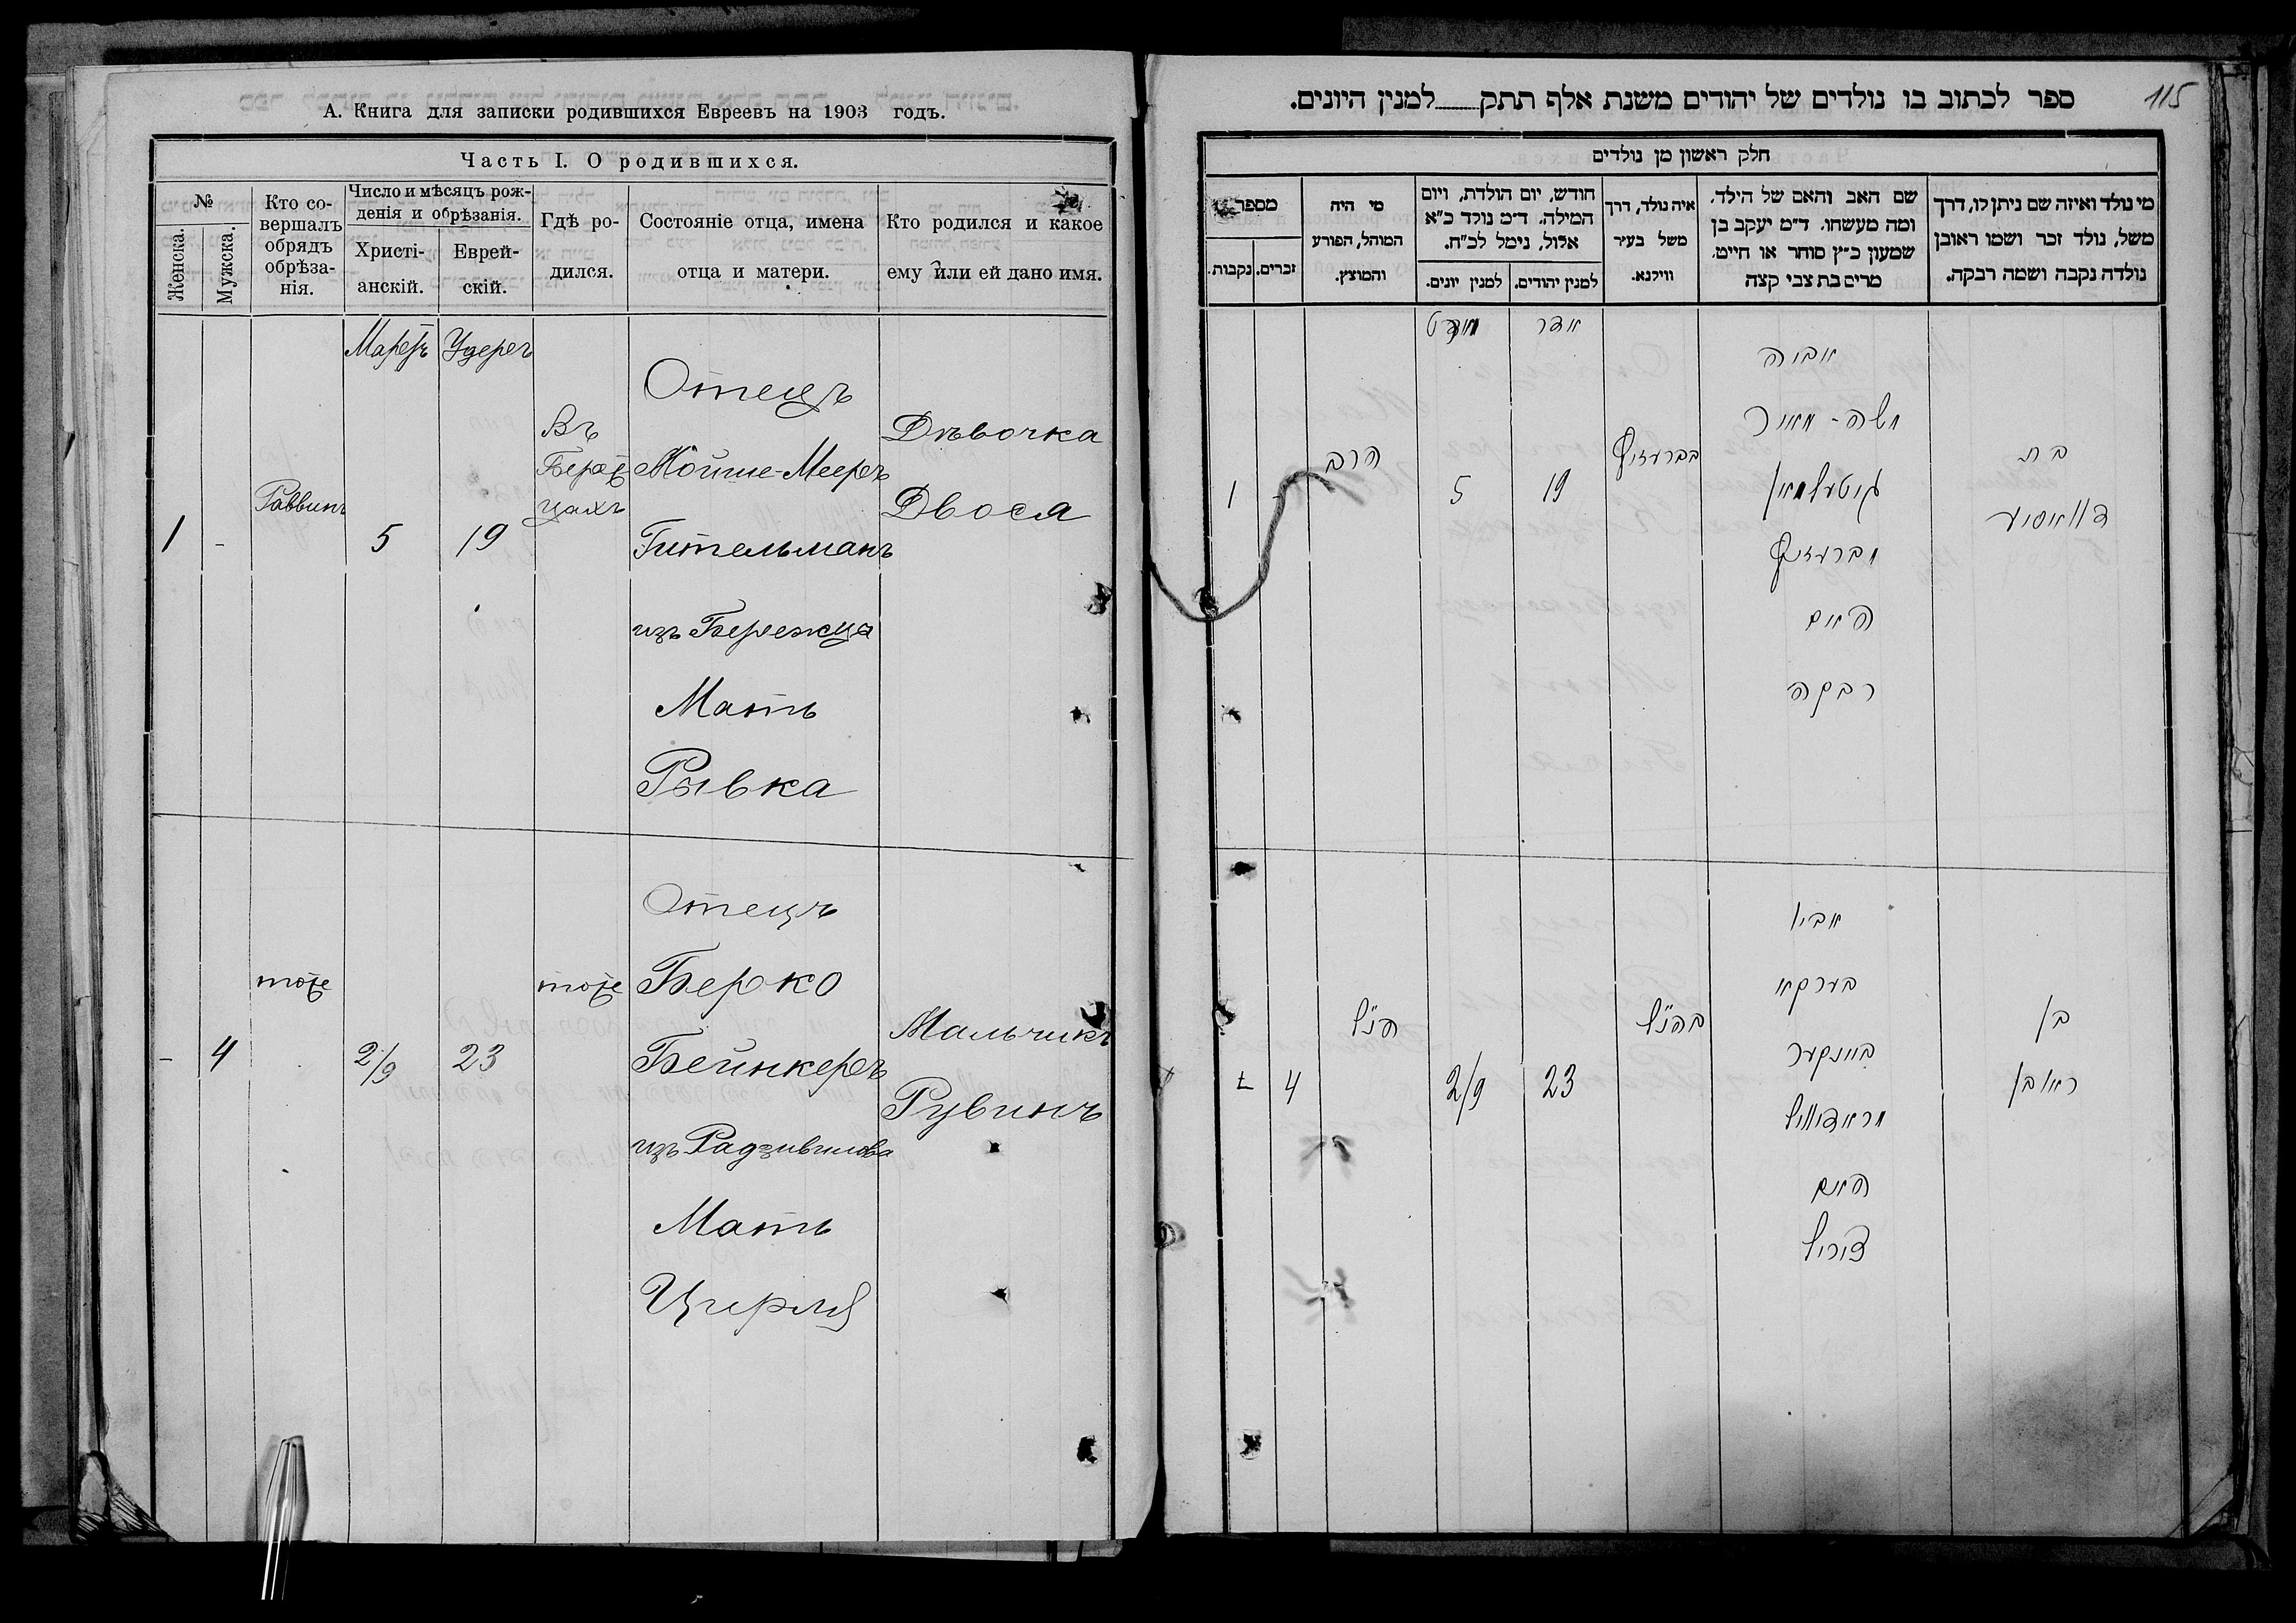 А. Книга для записки родившихся Евреевъ на 1903 годъ.
Часть I. О родившихся.
№
Женска.
Мужска.
Кто со-
вершалъ
обрядъ
обрѣза-
нія.
Число и мѣсяцъ рож-
денія и обрѣзанія.
Христі-
анскій.
Еврей-
скій.
Гдѣ ро-
дился.
Состояніе отца, имена
отца и матери.
Кто родился и какое
ему или ей дано имя.
Мартъ
Удеръ
1
-
Раввинъ
5
19
Въ
Береж
цахъ
Отецъ
Мойше-Мееръ
Гительманъ
изъ Бережца
Мать
Рывка
Дѣвочка
Двося
-
4
тоже
2/9
23
тоже
Отецъ
Берко
Бейнкеръ
изъ Радзивилова
Мать
Цирля
Мальчикъ
Рувинъ
115
ספר לכתוב בו נולדים של יהודים משנת אלף תתק למנין היונים.
חלק ראשון מן נולדים
מי נולד ואיזה שם ניתן לו, דרך
משל, נולד זכר ושמו ראובן
נולדה נקבה ושמה רבקה.
שם האב והאם של הילד,
ומה מעשהו. ד״מ יעקב בן
שמעון כ״ץ סוחר או חייט,
מרים בת צבי קצה
איה נולד, דרך
משל בעיר
ווילנא.
חודש, יום הולדת, ויום
המילה. ד״מ נולד כ״א
אלול, נימל לכ״ח.
למנין יהודים.
למנין יונים.
מי היה
המוהל, הפורע
והמוצץ.
מספר
זכרים.
נקבות.
אדר
מארט
בת
דוואסיע
אביה
משה-מאיר
גיטעלמאן
מברעזיץ
האם
רבקה
בברעזיץ
19
5
הרב
-
1
בן
ראובן
אביו
בערקא
ביינקער
מראדוויל
האם
ציריל
בהנ״ל
23
2/9
הנ״ל
4